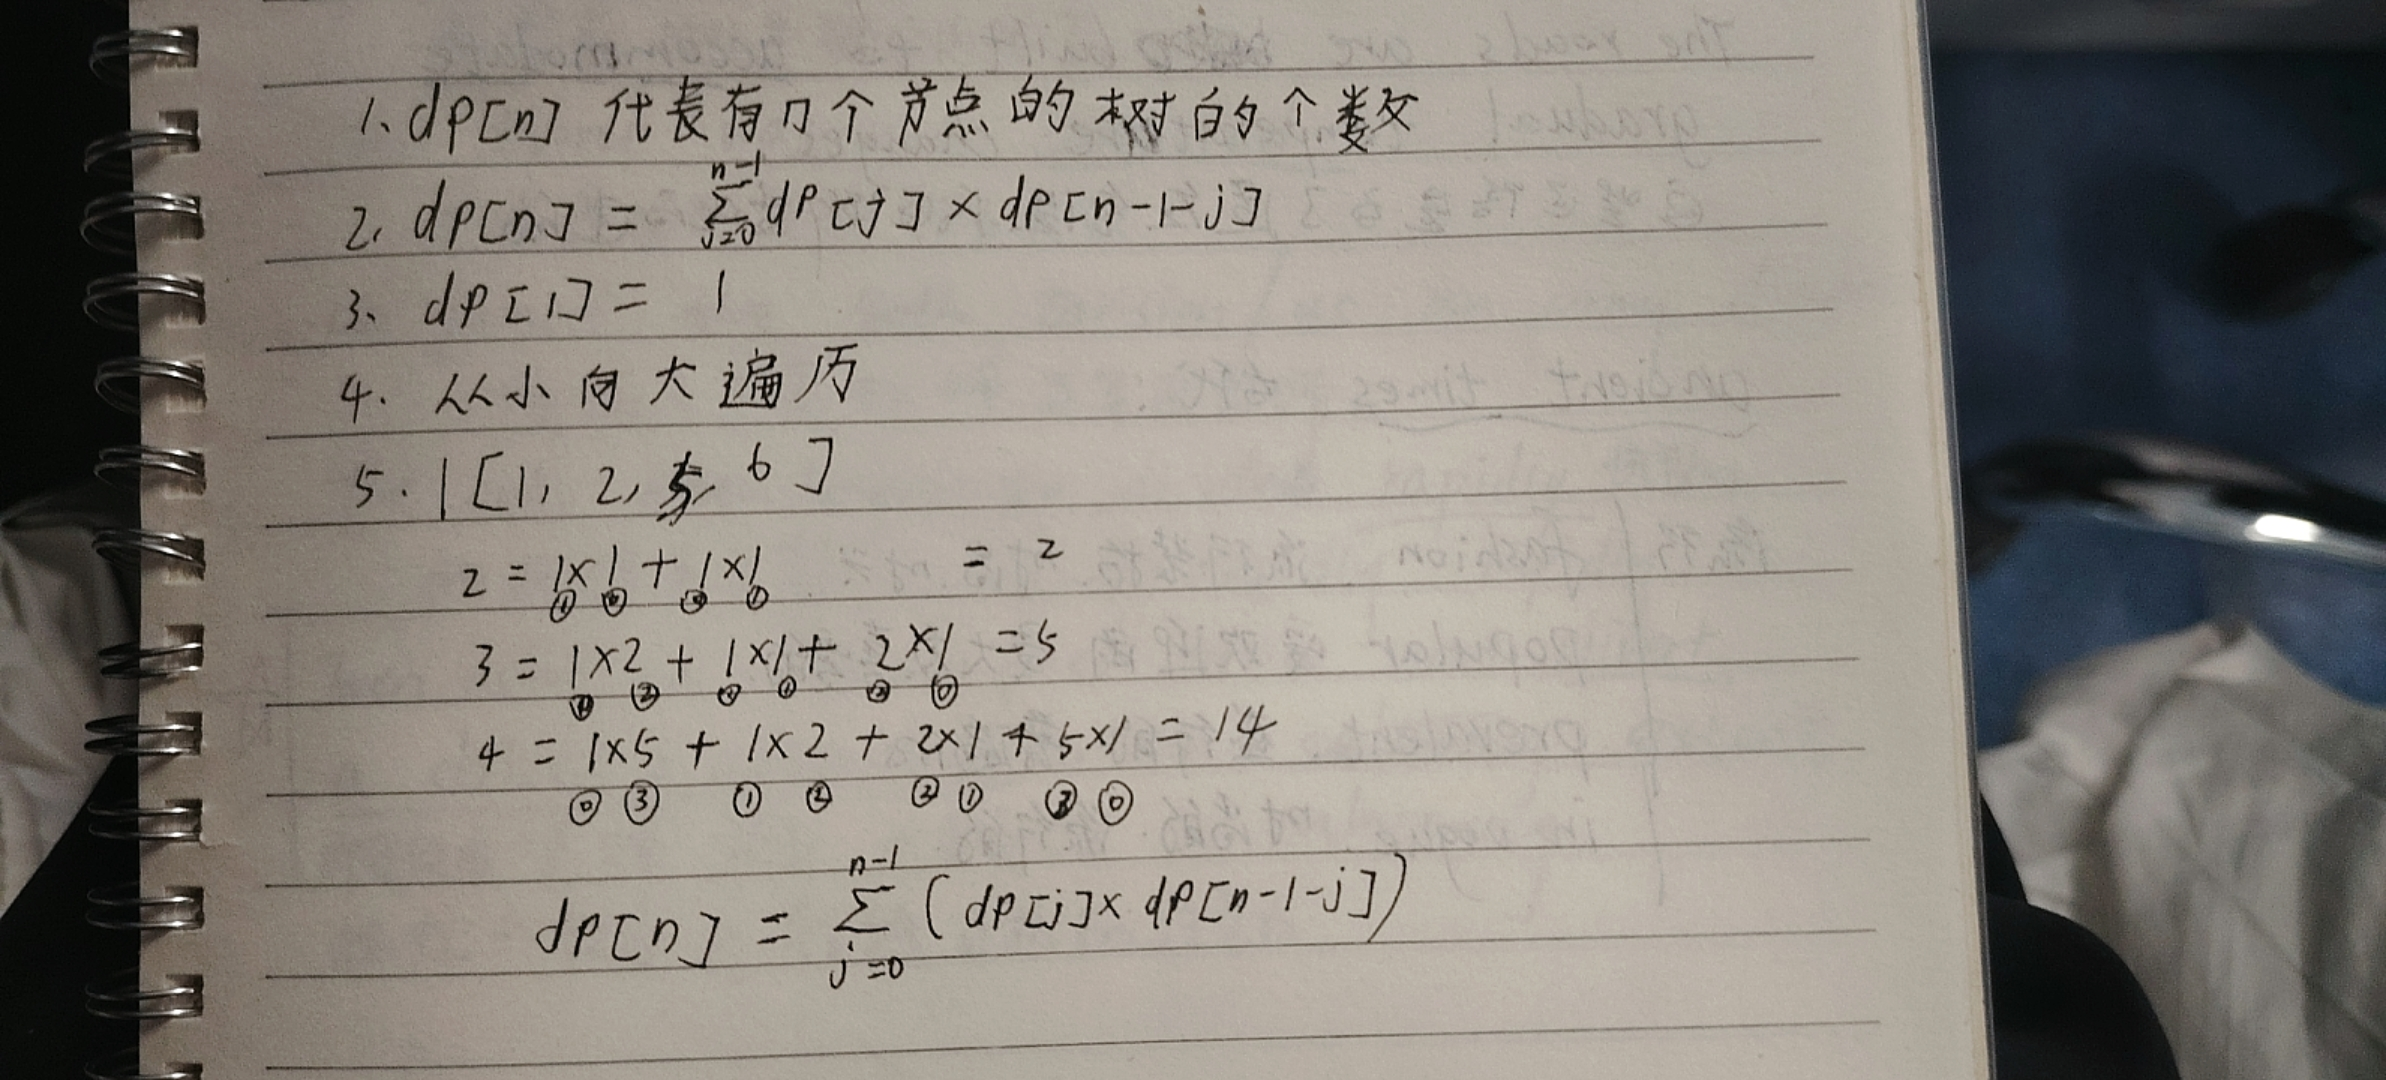 1、dp[n] 代表有n个节点的树的个数
2. dp[n] = \sum_{j=0}^{n-1} dp[j] × dp[n-1-j]
3、dp[1] = 1
4. 从小向大遍历
5. 1 [1, 2, 5, 6]
2 = 1×1 + 1×1 = 2
3 = 1×2 + 1×1 + 2×1 = 5
② ① ② ⓪
4 = 1×5 + 1×2 + 2×1 + 5×1 = 14
⓪ ③ ① ② ② ① ③ ⓪
dp[n] = \sum_{j=0}^{n-1} (dp[j] × dp[n-1-j])